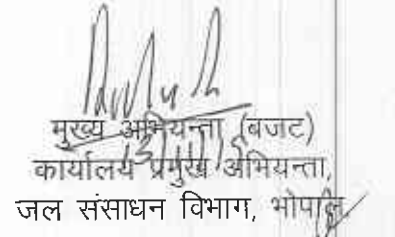 मुख्य अभियन्ता (बजट)
कार्यालय प्रमुख अभियन्ता,
जल संसाधन विभाग, भोपाल